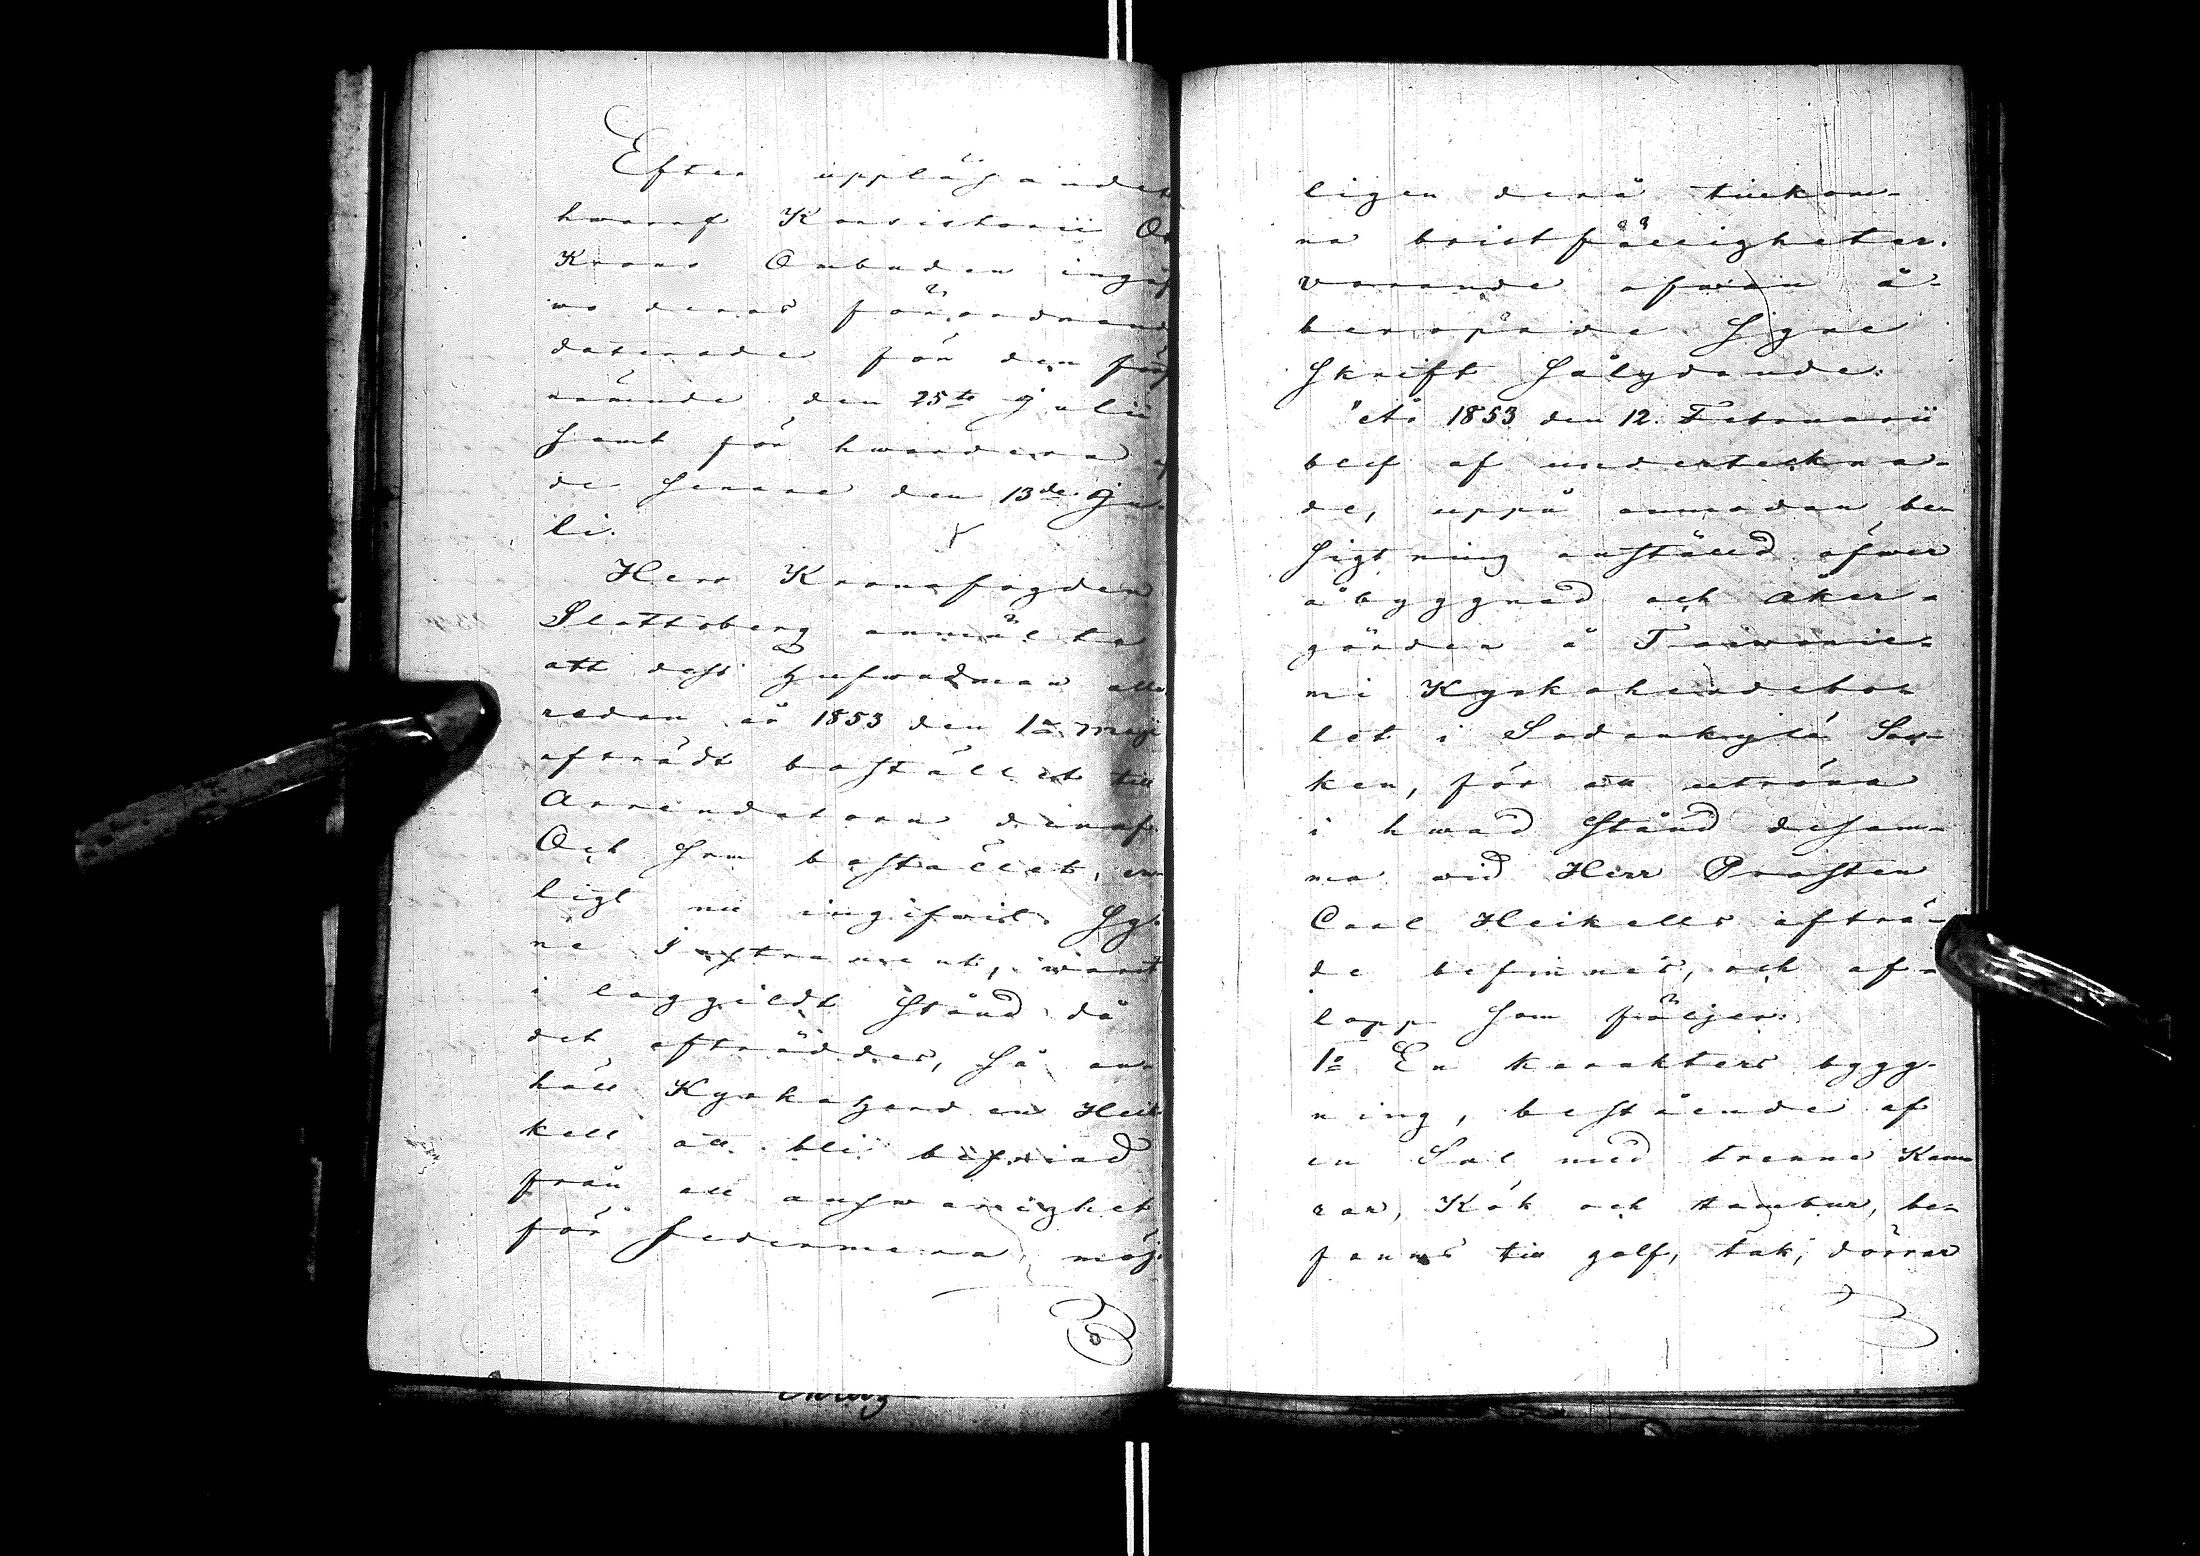 Efter uppläsandet
hwaraf Konsistorii Oc
Krono Ombuden ingåf
wo deras förordnand
daterade för den för
nämnde den 25te Julii
samt för hwardera af
de senare den 13de Ju-
li.
Herr Kronofogden
Planthoberg anmälte
att dess Hufwudman alle
redan år 1853 den 1a Maji
afträdt bostället till
Arrendatorn deraf
Och som bostället, en
ligt nu ingifwit Sy-
ne Instrument, warit
i laggildt stånd då
det afträddes, så an-
höll Kyrkoherden Hei
kell att bli befriad
från all answarighet
för sedermera möj-
ligen derå tillkom-
na bristfälligheter.
Varande ofwan å-
beropade Syne
skrift sålydande:
"År 1853 den 12. Februarii
blef af underteckna-
de, uppå anmodan be-
sigtning anställd öfwer
åbyggnad och åker-
gärden å Torwonie-
mi Kyrkoherdebol
let i Sodankylä Soc-
ken, för att utröna
i hwad stånd desam-
ma wid Herr Prosten
Carl Heikells afträ-
de befinnes, och af-
lopp som följer:
1o En karakters bygg-
ning, bestående af
en Sal med trenne Kam
rar, Kök och tambur, be-
fanns till golf, tak, dörrar